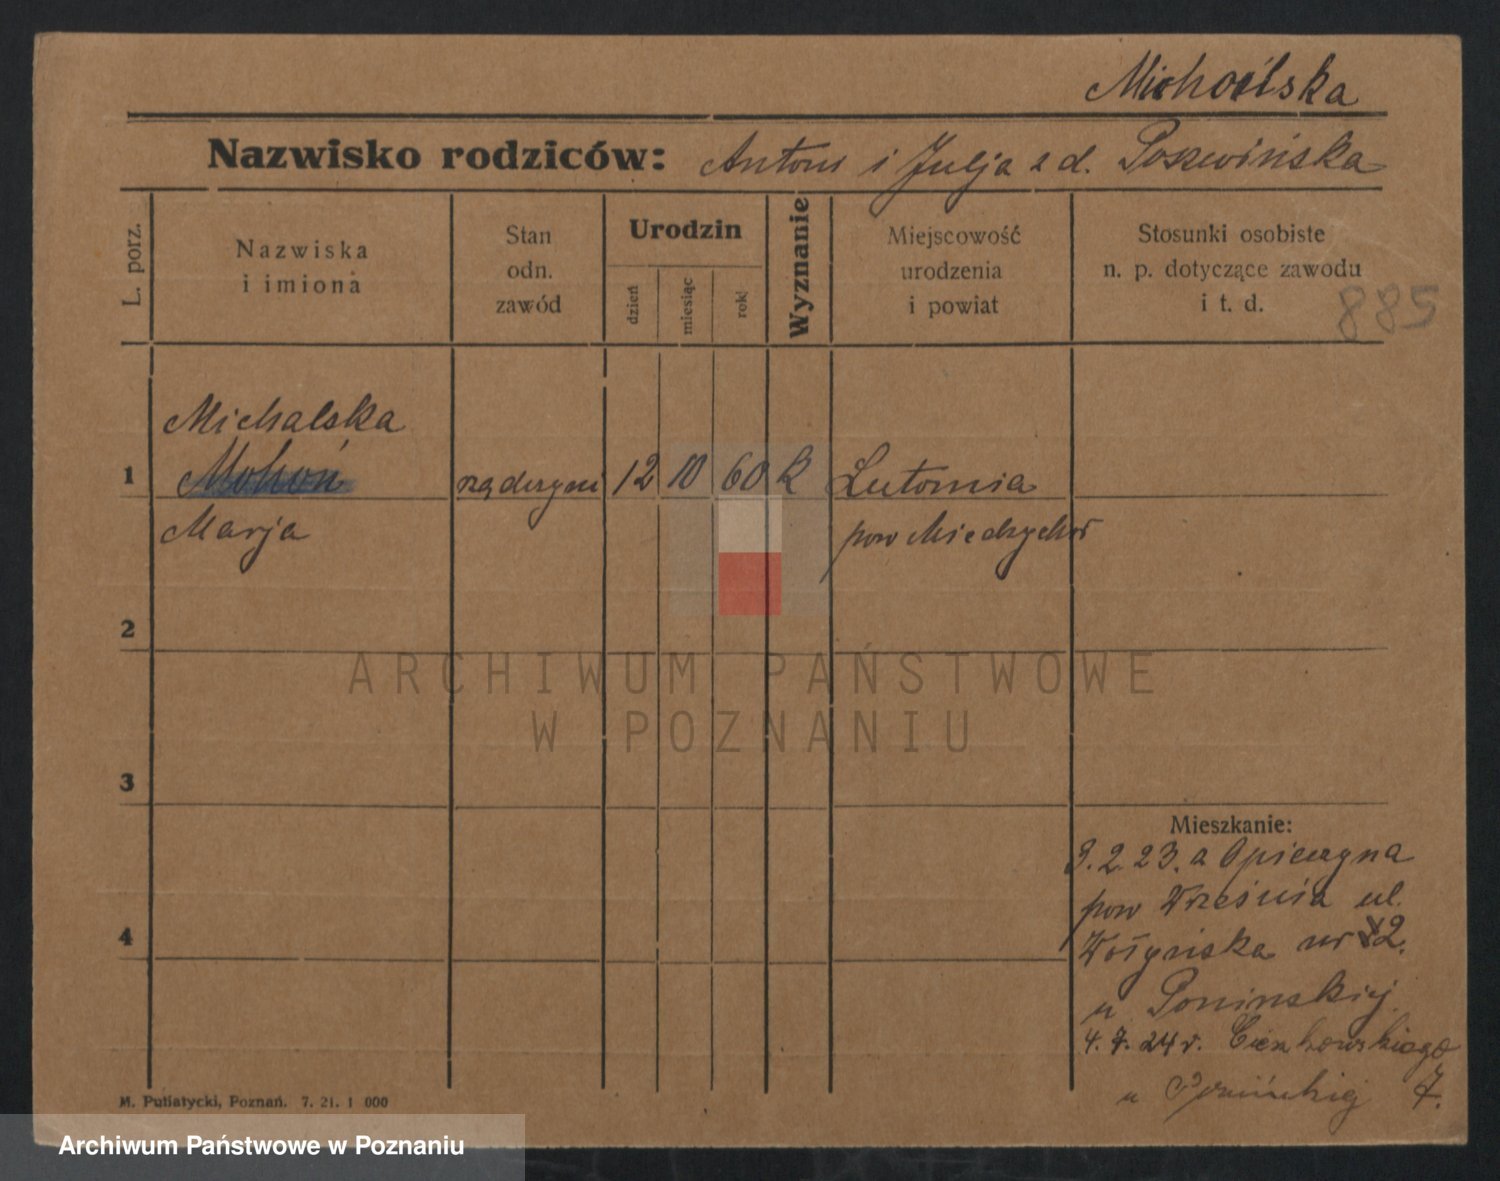 Michalska
Nazwisko rodziców: Antoni i Julja z d. Poszwińska
L. porz.
Nazwiska
i imiona
Stan
odn.
zawód
Urodzin
dzień
miesiąc
rok
Wyznanie
Miejscowość
urodzenia
i powiat
Stosunki osobiste
n. p. dotyczące zawodu
i t. d.
885
Michalska
1 12 10 60 k Lutomia
Marja pow Miedzychód
2
ARCHIWUM PAŃSTWOWE
W POZNANIU
3
Mieszkanie:
2.23. z Opieczyna
pow Września ul.
4
Wołyńska nr 2.
u Poninskiej
4. 7. 24 r.
u 7.
M. Putiatycki, Poznań. 7. 21. 1 000
Archiwum Państwowe w Poznaniu